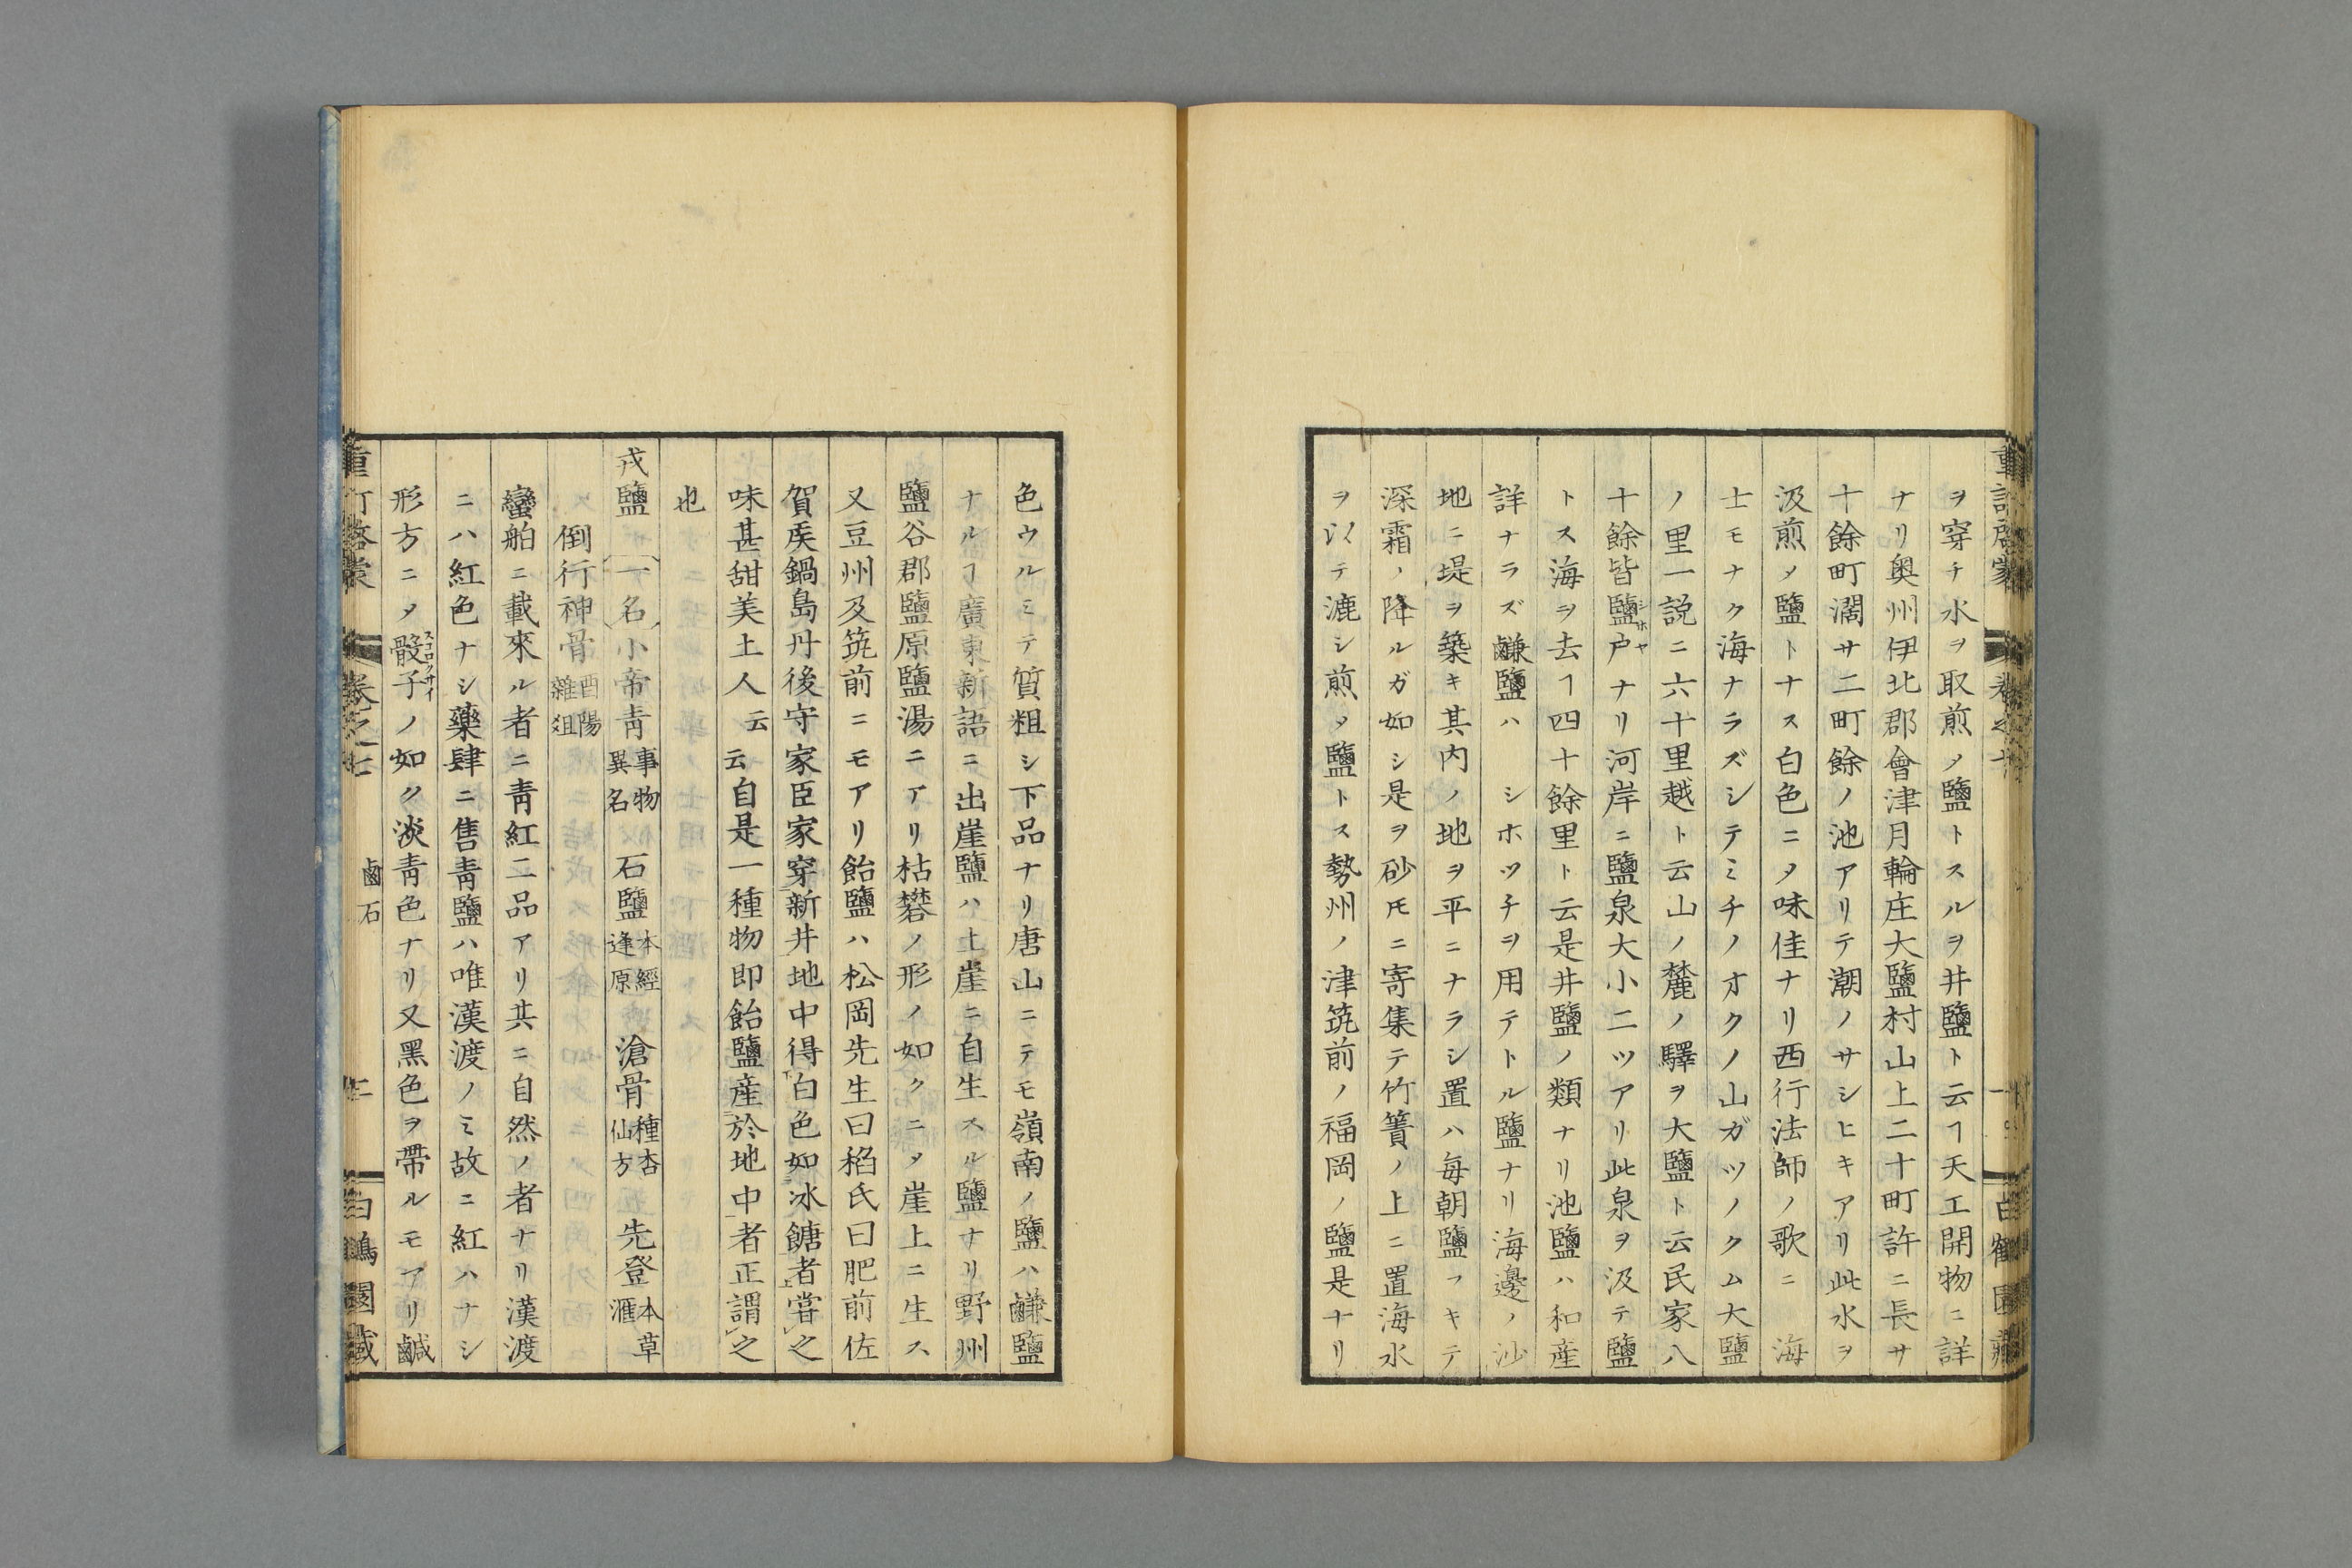 ヲ穿チ水ヲ取煎〆鹽トスルヲ井鹽ト云ヿ天工開物ニ詳
ナリ奥州伊北郡會津月輪庄大鹽村山上二十町許ニ長サ
十餘町濶サ二町餘ノ池アリテ潮ノサシヒキアリ此水ヲ
汲煎〆鹽トナス白色ニ〆味佳ナリ西行法師ノ歌ニ 海
士モナク海ナラズシテミチノオクノ山ガツノクム大鹽
ノ里一説ニ六十里越ト云山ノ麓ノ驛ヲ大鹽ト云民家八
十餘皆鹽戸シホヤナリ河岸ニ鹽泉大小二ツアリ此泉ヲ汲テ鹽
トス海ヲ去ヿ四十餘里ト云是井鹽ノ類ナリ池鹽ハ和産
詳ナラズ鹻鹽ハ シホツチヲ用テトル鹽ナリ海邊ノ沙
地ニ堤ヲ築キ其内ノ地ヲ平ニナラシ置ハ毎朝鹽フキテ
深霜ノ降ルガ如シ是ヲ砂𪜈ニ寄集テ竹簀ノ上ニ置海水
ヲ以テ漉シ煎〆鹽トス勢州ノ津筑前ノ福岡ノ鹽是ナリ
色ウルミテ質粗シ下品ナリ唐山ニテモ嶺南ノ鹽ハ鹻鹽
ナルヿ廣東新語ニ出崖鹽ハ土崖ニ自生スル鹽ナリ野州
鹽谷郡鹽原鹽湯ニアリ枯礬ノ形ノ如クニ〆崖上ニ生ス
又豆州及筑前ニモアリ飴鹽ハ松岡先生曰稻氏曰肥前佐
賀矦鍋島丹後守家臣家穿新井地中得白色如冰餹者甞之
味甚甜美土人云云自是一種物即飴鹽産於地中者正謂之
也
戎鹽 一名小帝青事物異名 石鹽本經逢原 滄骨種杏仙方 先登本草滙
倒行神骨酉陽雜俎
蠻舶ニ載來ル者ニ青紅二品アリ其ニ自然ノ者ナリ漢渡
ニハ紅色ナシ藥肆ニ售青鹽ハ唯漢渡ノミ故ニ紅ハナシ
形方ニ〆骰子スコロクサイノ如ク淡青色ナリ又黑色ヲ帶ルモアリ鹹
卷之七
鹵石